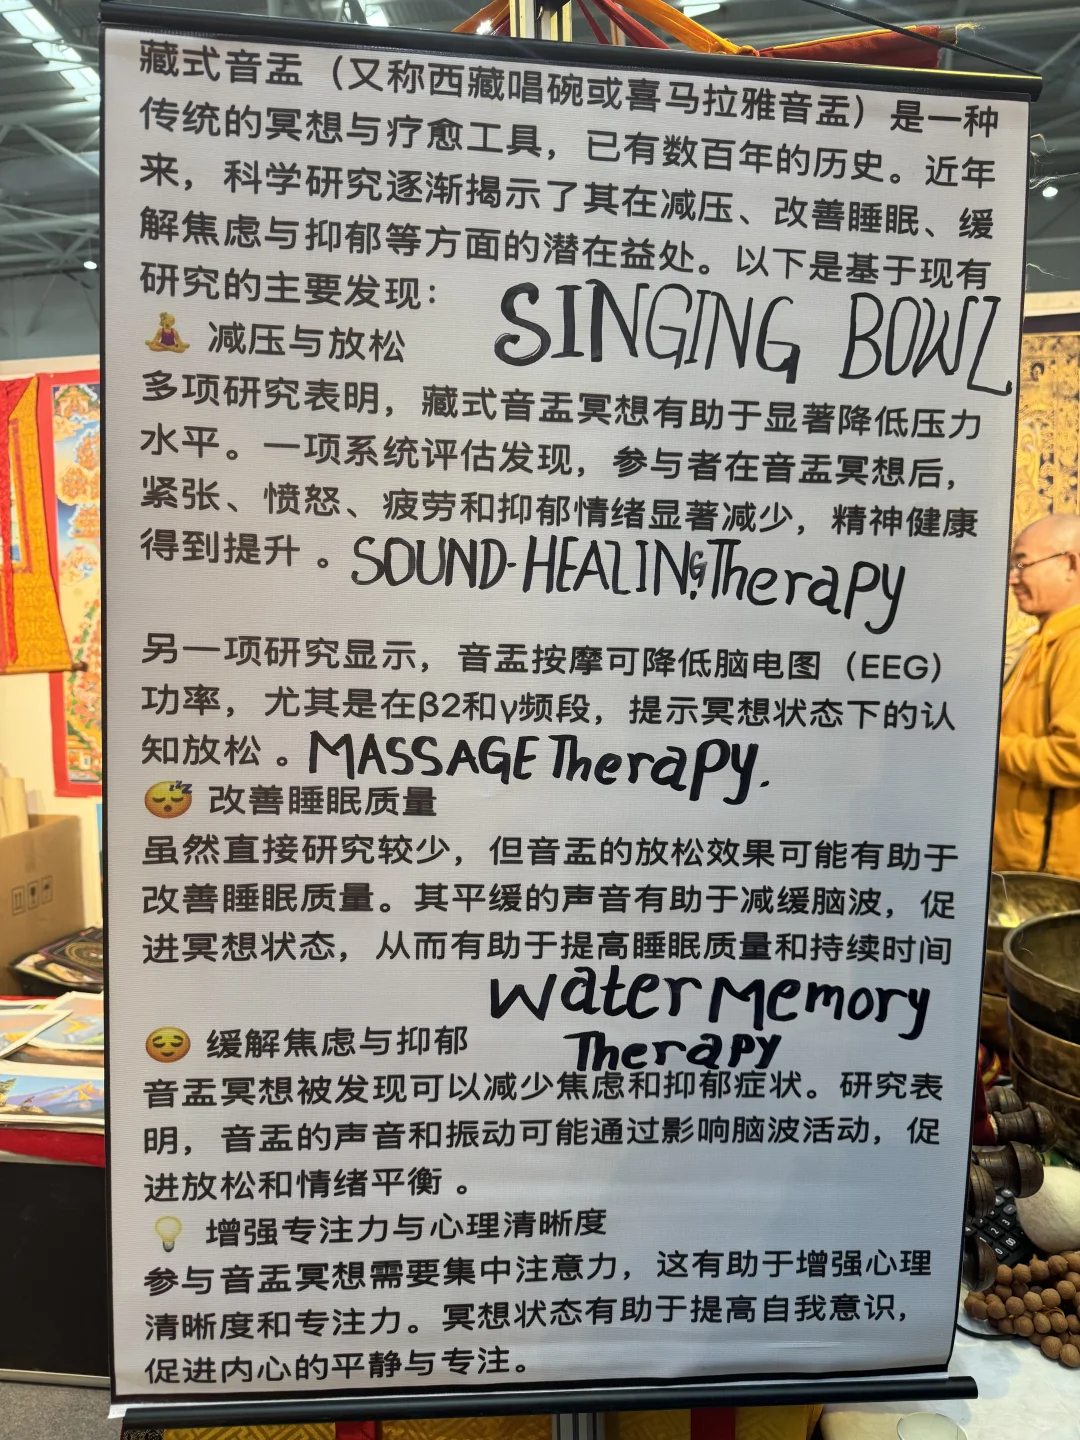 藏式音盂（又称西藏唱碗或喜马拉雅音盂）是一种
传统的冥想与疗愈工具，已有数百年的历史。近年
来，科学研究逐渐揭示了其在减压、改善睡眠、缓
解焦虑与抑郁等方面的潜在益处。以下是基于现有
研究的主要发现：
SINGING BOWL
🧘‍♀️ 减压与放松
多项研究表明，藏式音盂冥想有助于显著降低压力
水平。一项系统评估发现，参与者在音盂冥想后，
紧张、愤怒、疲劳和抑郁情绪显著减少，精神健康
得到提升 。
SOUND-HEALING Therapy
另一项研究显示，音盂按摩可降低脑电图（EEG）
功率，尤其是在β2和γ频段，提示冥想状态下的认
知放松 。
MASSAGE Therapy.
😴 改善睡眠质量
虽然直接研究较少，但音盂的放松效果可能有助于
改善睡眠质量。其平缓的声音有助于减缓脑波，促
进冥想状态，从而有助于提高睡眠质量和持续时间
Water Memory
Therapy
😌 缓解焦虑与抑郁
音盂冥想被发现可以减少焦虑和抑郁症状。研究表
明，音盂的声音和振动可能通过影响脑波活动，促
进放松和情绪平衡 。
💡 增强专注力与心理清晰度
参与音盂冥想需要集中注意力，这有助于增强心理
清晰度和专注力。冥想状态有助于提高自我意识，
促进内心的平静与专注。